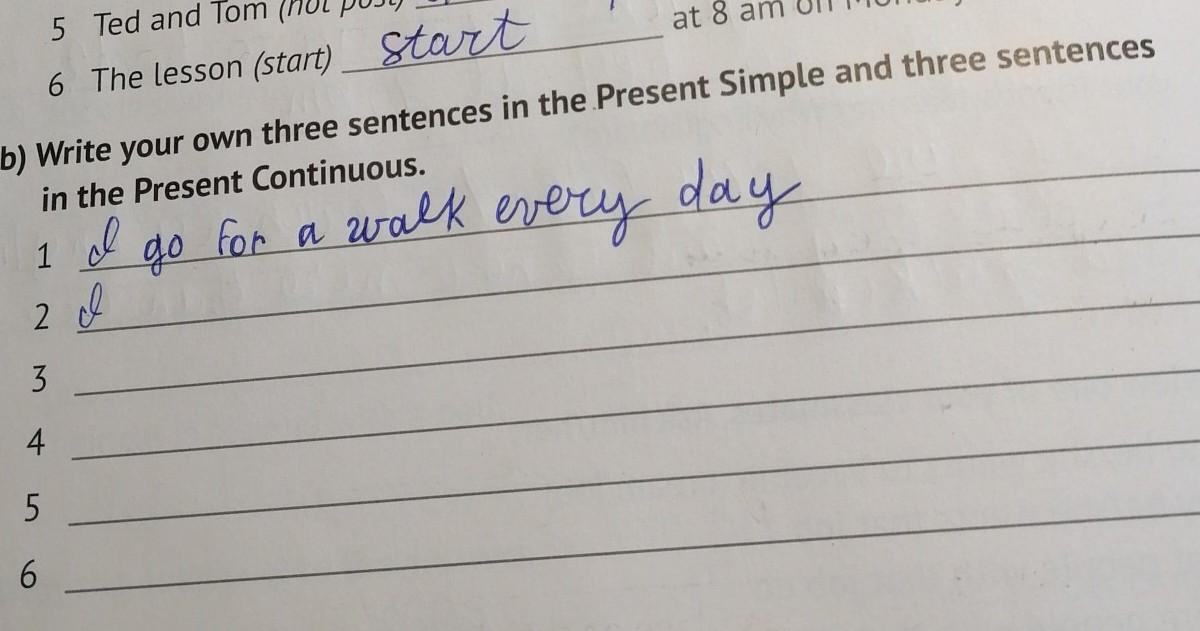 5 Ted and Tom (not post)
6 The lesson (start) start at 8 am on
b) Write your own three sentences in the Present Simple and three sentences
in the Present Continuous.
1 I go for a walk every day
2 I
3
4
5
6